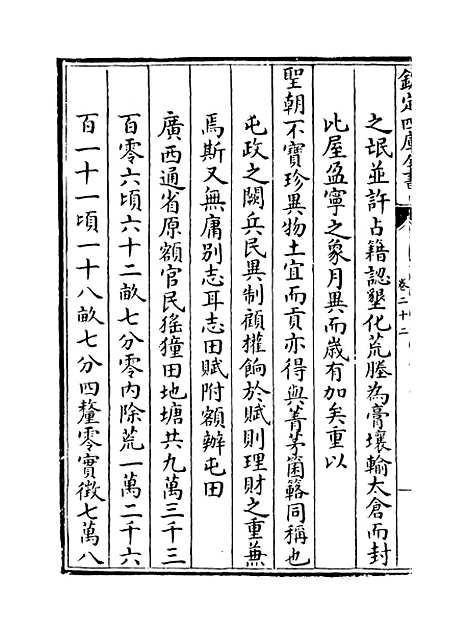 欽定四庫全書
卷二十二
之垊並許占籍認墾化荒塍為膏壤輸太倉而封
比屋盈寧之象月異而歲有加矣重以
聖朝不寶珍異物土宜而貢亦得與菁茅箘簵同稱也
屯政之闕兵民異制顧權餉於賦則理財之重蕪
焉斯又無庸别志耳志田賦附額辦屯田
廣西通省原額官民猺獞田地塘共九萬三千三
百零六頃六十二畝七分零内除荒一萬二千六
百一十一頃一十八畝七分四釐零實徴七萬八